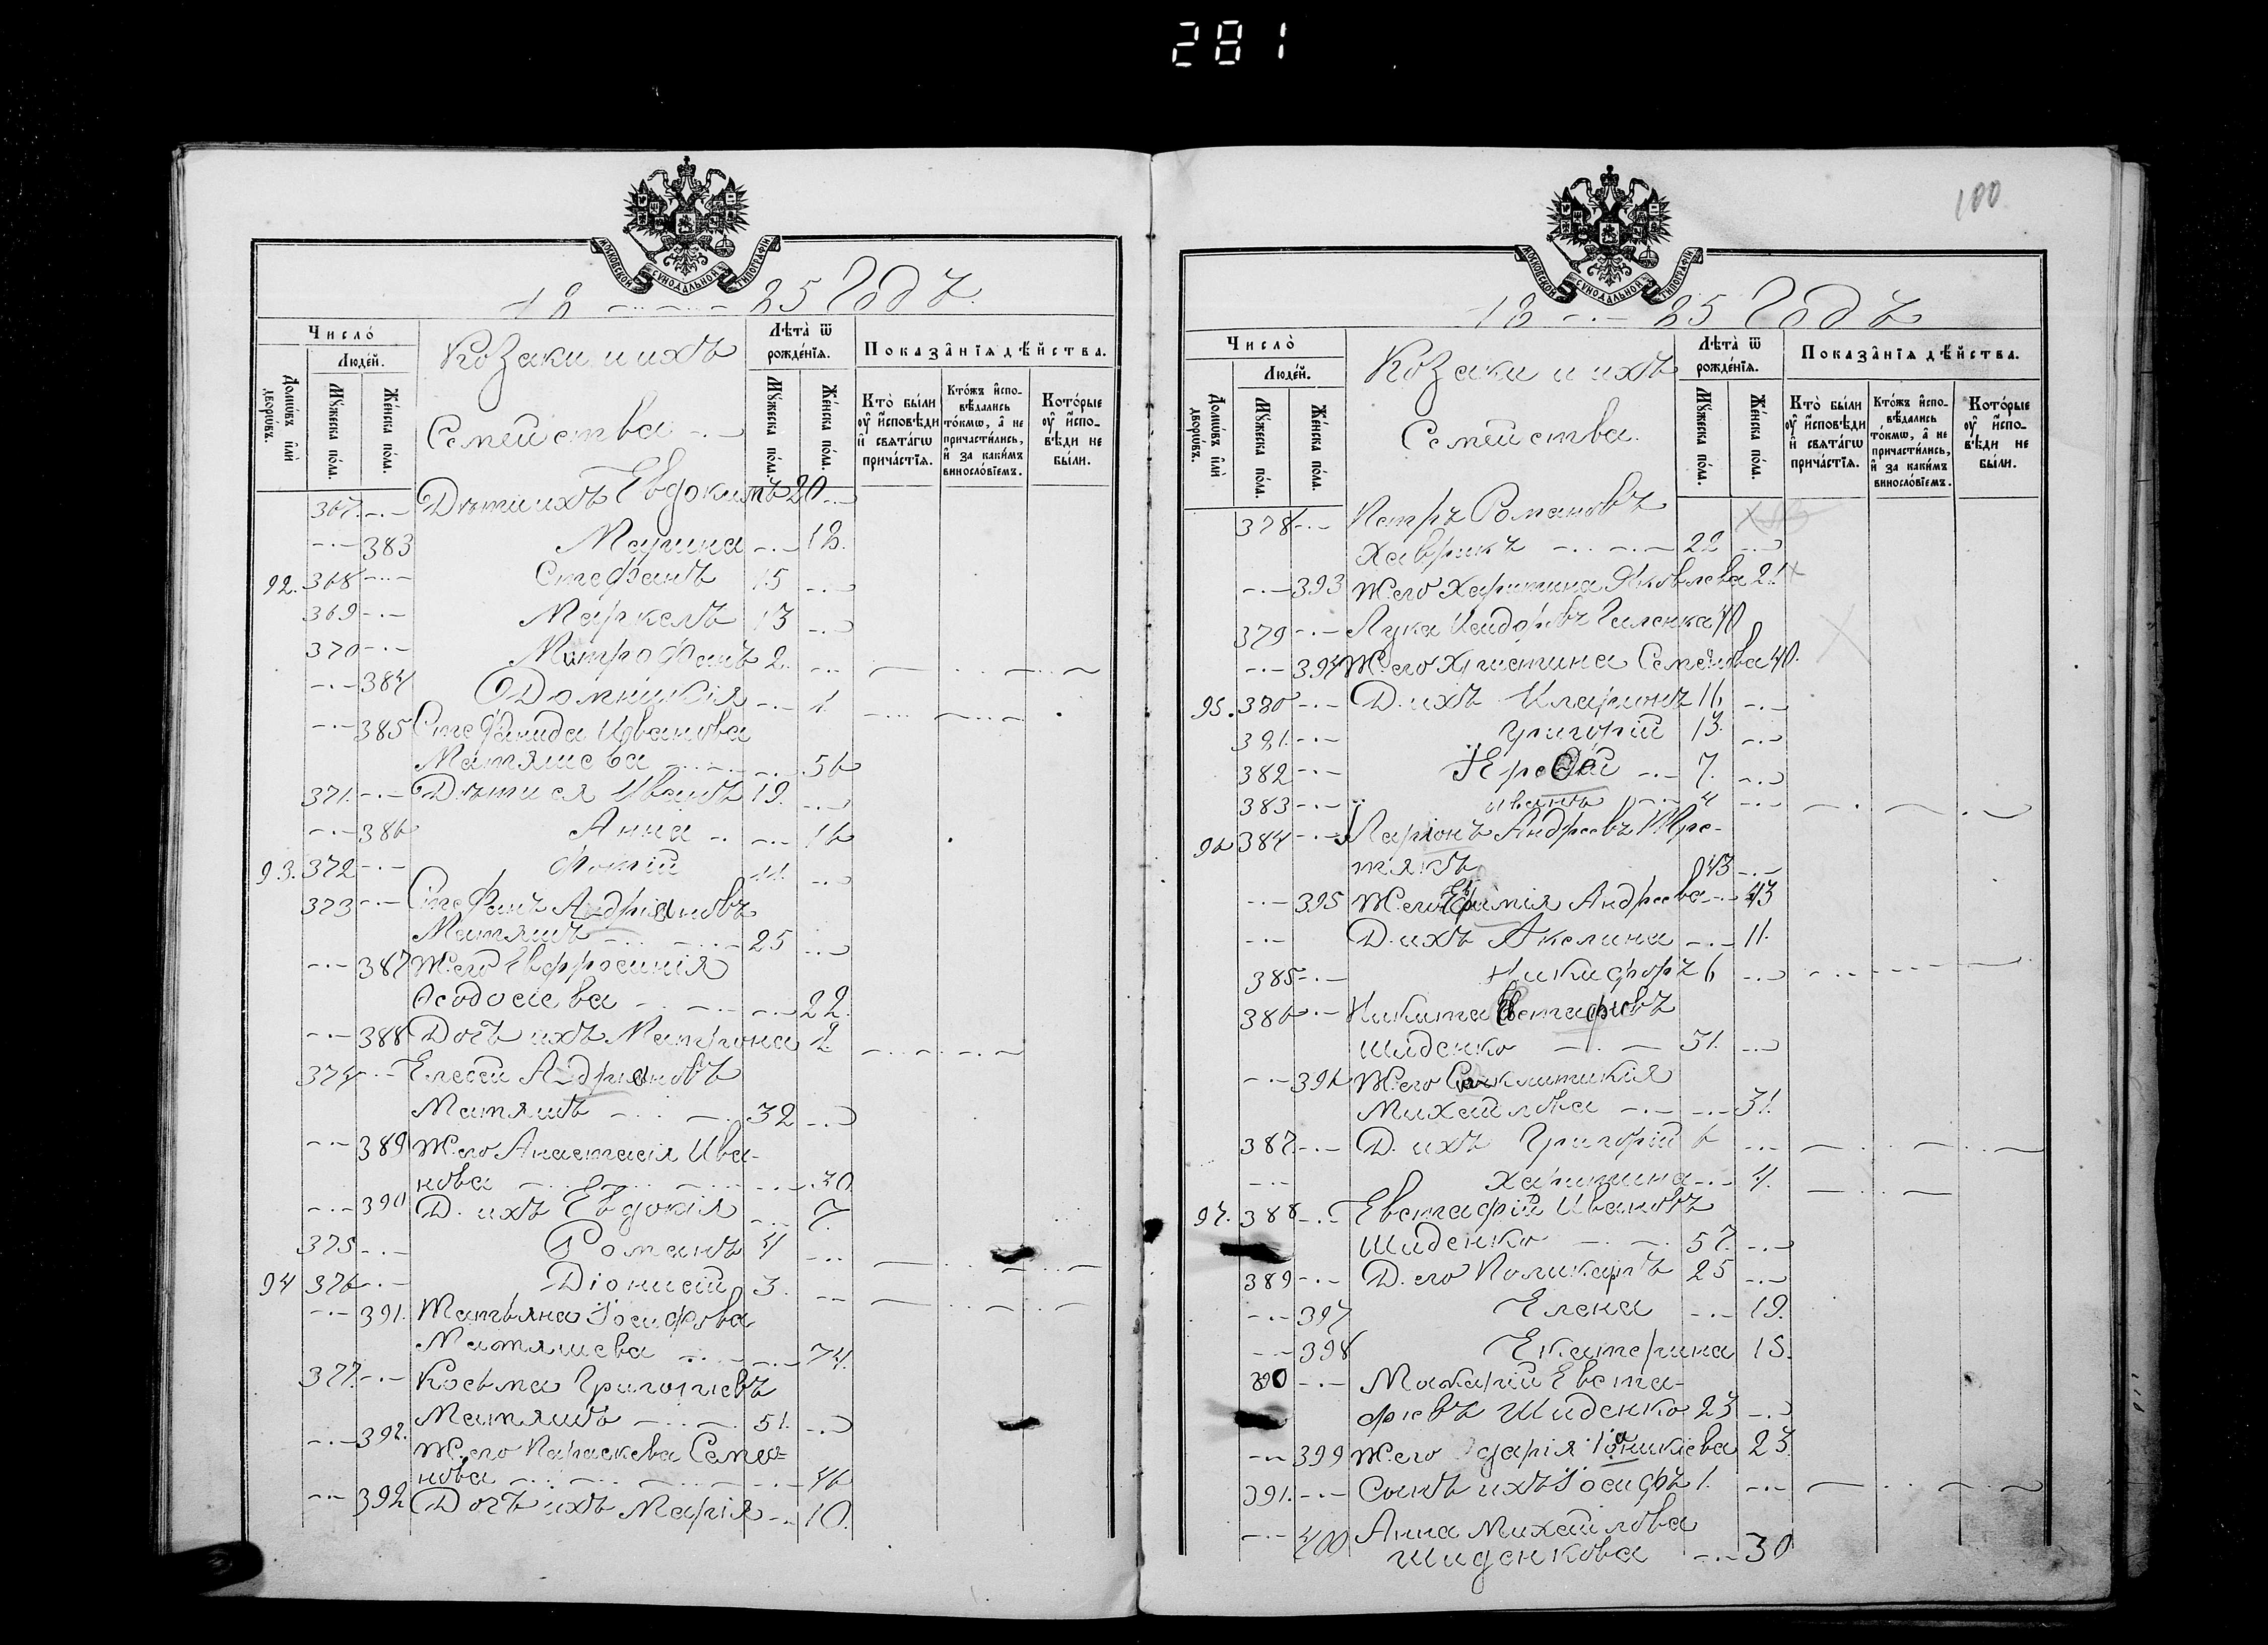 281
МОСКОВСКОЙ СѴНОДАЛЬНОЙ ТИПОГРАФІИ
18 -..-..- 85 Годъ.
Число̀
Людей.
Домѡ́въ и҆лѝ дворѡ́въ.
Мꙋ́жеска по́ла.
Же́нска по́ла.
Козаки и ихъ
Семейства -.-
Лѣ́та ѿ рожде́нїѧ.
Мꙋ́жеска по́ла.
Же́нска по́ла.
Показа̑нїѧ дѣ́йства.
Кто̀ бы́ли
оу҆ и҆сповѣ́ди
и҆ свѧта́гѡ
прича́стїѧ.
Кто́жъ и҆спо-
вѣ́дались
то́кмѡ, а҆ не
причасти́лись,
и҆ за каки́мъ
винослові́емъ.
Кото́рые
оу҆ и҆спо-
вѣ́ди не
бы́ли.
367. -.- Дѣти ихъ Евдокимъ 20 -.-
-.- 383 Марина -.- 18.
92. 368 -.- Стефанъ 15 -.-
369 -.- Маркелъ 13 -.-
370 -.- Митрофанъ 2. -.-
-.- 384 Домникія -.- 1.
-.- 385 Стефанида Иванова
Матяшева -.- -.- 56
371. -.- Дѣти ея Иванъ 19. -.-
-.- 386 Анна -.- 16
93. 372 -.- Фотій 11. -.-
373 -.- Стефанъ Андріановъ
Матяшъ -.- 25 -.-
-.- 387 Ж. его Евфросинія
Ѳеодосіева -.- 22.
-.- 388 Дочь ихъ Матрона 2.
374 -.- Елесей Андріановъ
Матяшъ -.- 32 -.-
-.- 389 Ж. его Анастасія Ива-
нова -.- 30
-.- 390 Д. ихъ Евдокія -.- 7.
375 -.- Романъ 4 -.-
94 376 -.- Діонисій 3. -.-
-.- 391. Татьяна Іосифова
Матяшева -.- 74.
377. -.- Косьма Григоріевъ
Матяшъ -.- 51. -.-
-.- 392. Ж. его Параскева Семе-
нова -.- 46
-.- 392 Дочь ихъ Марія -.- 10.
100
МОСКОВСКОЙ СѴНОДАЛЬНОЙ ТИПОГРАФІИ
18 -.- 85 Годъ
Число̀
Людей.
Домѡ́въ и҆лѝ дворѡ́въ.
Мꙋ́жеска по́ла.
Же́нска по́ла.
Козаки и ихъ
Семейства.
Лѣ́та ѿ рожде́нїѧ.
Мꙋ́жеска по́ла.
Же́нска по́ла.
Показа̑нїѧ дѣ́йства.
Кто̀ бы́ли
оу҆ и҆сповѣ́ди
и҆ свѧта́гѡ
прича́стїѧ.
Кто́жъ и҆спо-
вѣ́дались
то́кмѡ, а҆ не
причасти́лись,
и҆ за каки́мъ
винослові́емъ.
Кото́рые
оу҆ и҆спо-
вѣ́ди не
бы́ли.
378 -.- Петръ Романовъ
Хаврикъ -.- 22 -.-
-.- 393 Ж. его Харитина Яковлева 21.
379 -.- Лука Исидоровъ 40
-.- 394 Ж. его Христина Семенова 40.
95. 380 -.- Д. ихъ Иларионъ 16 -.-
381. -.- Григорій 13. -.-
382 -.- 7. -.-
383 -.- Иванъ -.- 4 -.-
96 384 -.- Ларіонъ Андреевъ Тре-
тякъ 43 -.-
-.- 395 Ж. его Андреева -.- 43
-.- Д. ихъ Акелина -.- 11.
385 -.- Никифоръ 6 -.-
386 -.- Никита Евстафіевъ
Шиденко -.- 31. -.-
-.- 396 Ж. его Синклитикія
Михайлова -.- -.- 31.
387. -.- Д. ихъ Григорій 6 -.-
-.- Харитина -.- 4.
97. 388 -.- Евстафій Ивановъ
Шиденко -.- 57. -.-
389 -.- Д. его Поликарпъ 25 -.-
-.- 397 Елена -.- 19.
-.- 398 Екатерина 15.
390 -.- Макарій Евста-
фіевъ Шиденко 23 -.-
-.- 399 Ж. его Дарія Іоникіева 23.
391. -.- Сынъ ихъ Іосифъ 1. -.-
-.- 400 Анна Михайлова
Шиденкова -.- 30